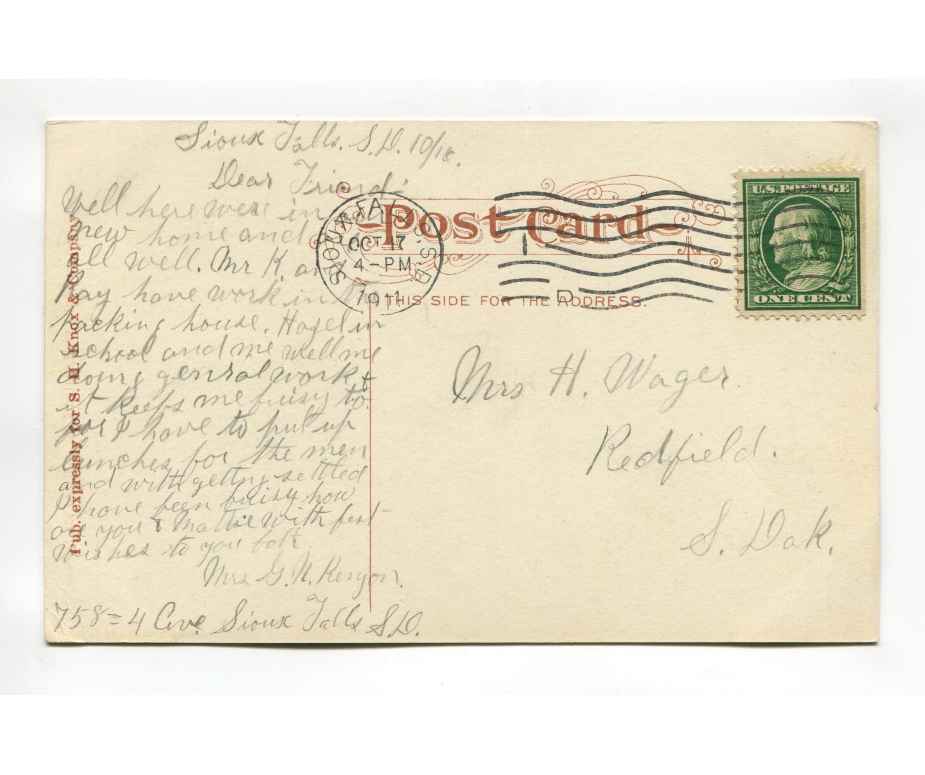 Sioux Falls. S.D. 10/18.
Dear Friend:
Well here were in
new home and
all well. Mr K. an
Ray have work in
packing house. Hazel in
school and me well me
doing genral work &
it keeps me buisy to
for I have to put up
lunches for the men
and with getting settled
I have been buisy how
are you & Mattie with best
wishes to you both.
Mrs G. N. Kenyon.
758 = 4 Ave. Sioux Falls S.D.
Pub. expressly for S. H. Knox & Company
Post Card
THIS SIDE FOR THE ADDRESS.
SIOUX FALLS S.D.
OCT 17
4 - PM
1911
D
U.S. POSTAGE
ONE CENT
Mrs H. Wager.
Redfield.
S. Dak.